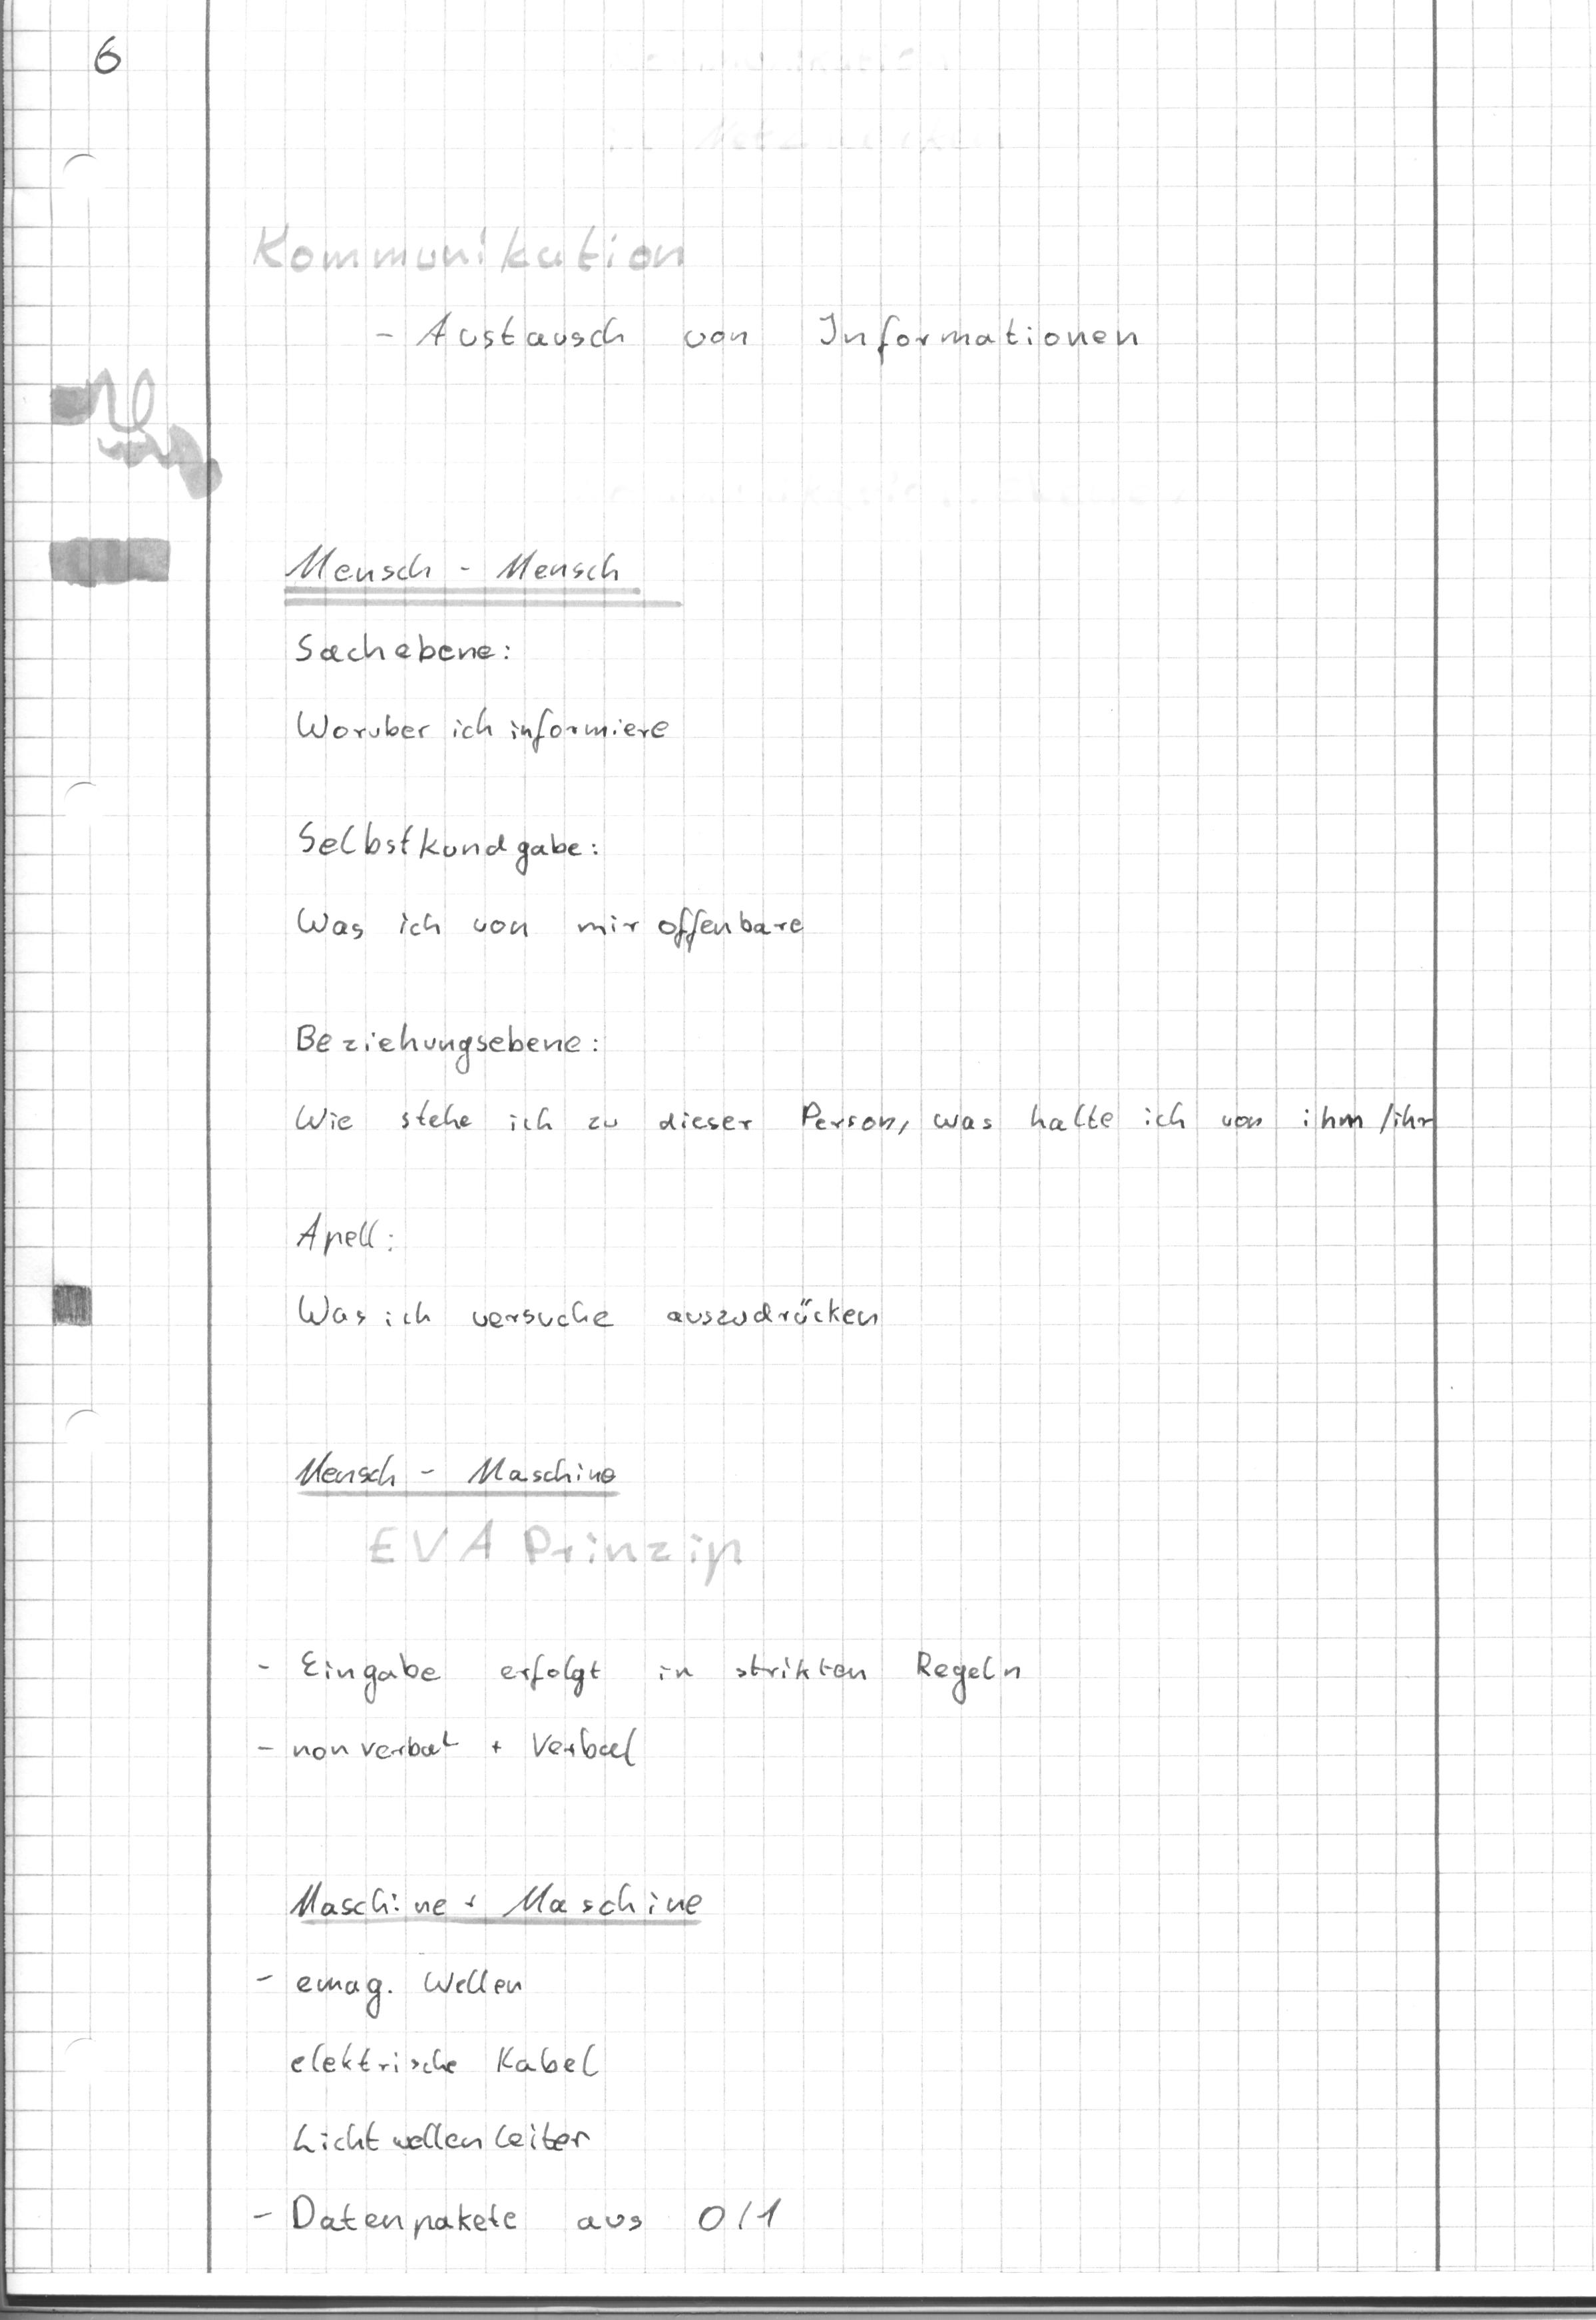 6
Kommunikation
- Austausch von Informationen
Mensch - Mensch
Sachebene:
Woruber ich informiere
Selbstkundgabe:
Was ich von mir offenbare
Beziehungsebene:
Wie stehe ich zu dieser Person, was halte ich von ihm /ihr
Apell:
Was ich versuche auszudrücken
Mensch - Maschine
EVA Prinzip
- Eingabe erfolgt in strikten Regeln
- nonverbal + Verbal
Maschine + Maschine
- emag. Wellen
elektrische Kabel
Lichtwellenleiter
- Datenpakete aus 0/1